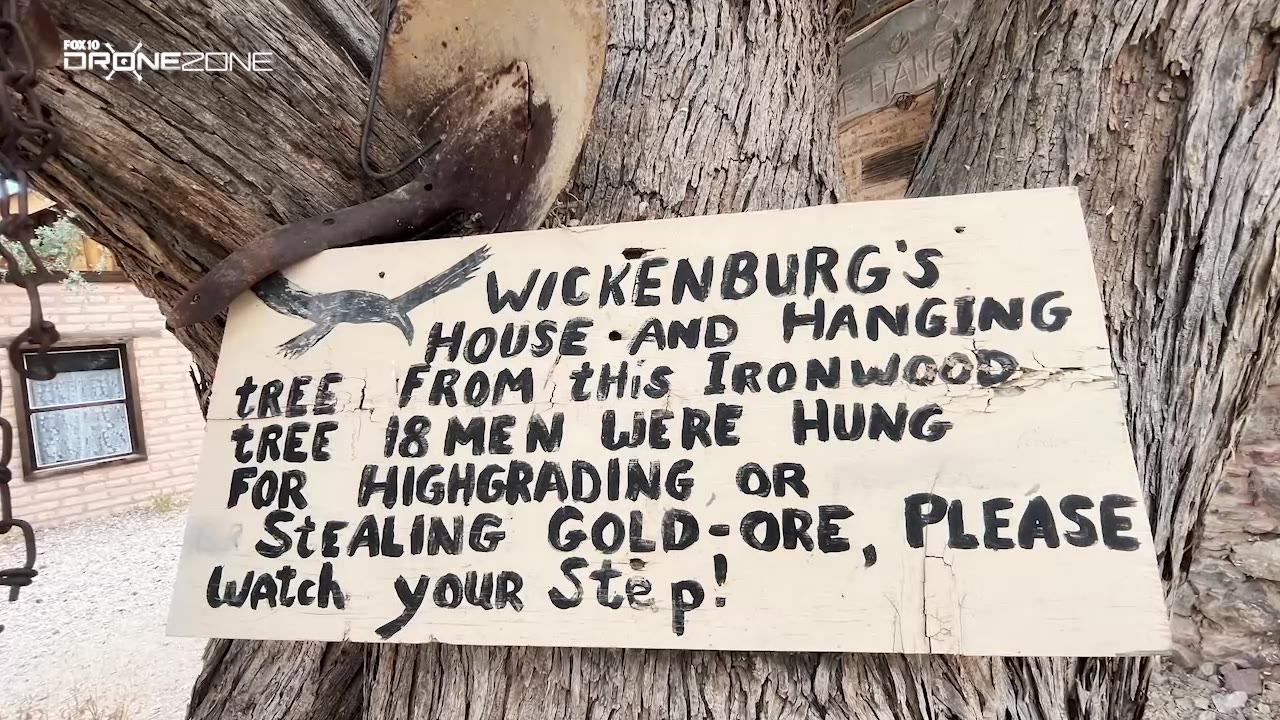 FOX 10
DRONEZONE
E HANG
WICKENBURG'S
HOUSE AND HANGING
tREE FROM tHis IRONWOOD
tREE 18 MEN WERE HUNG
FOR HIGHGRADING OR
StEALING GOLD-ORE, PLEASE
Watch your Step!